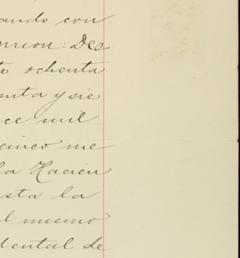 ando con
rreon: Des
te ochenta
enta y sie
ce mil
cinco me
la Hacien
esta la
l mismo
dental de